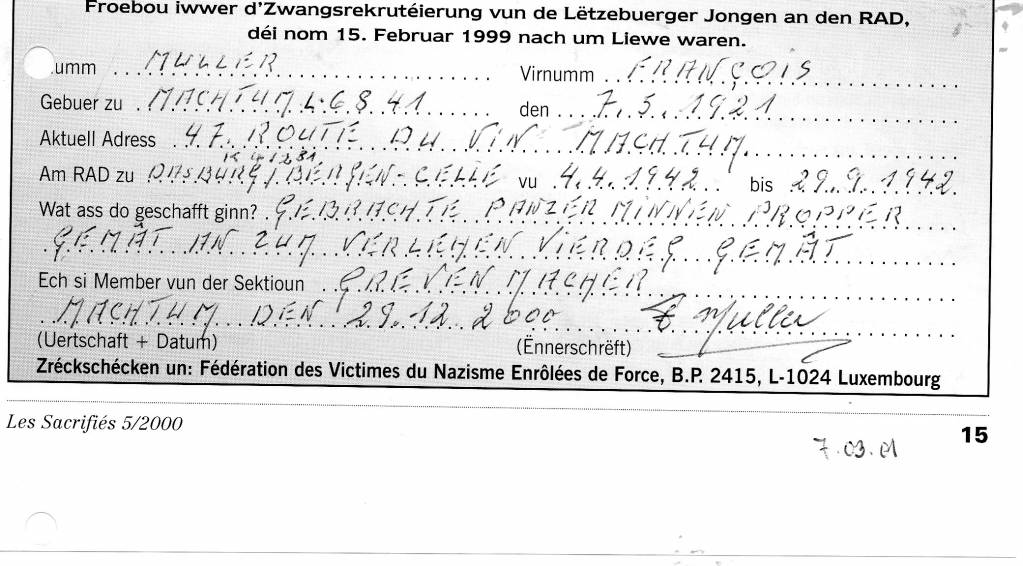 Froebou iwwer d'Zwangsrekrutéierung vun de Lëtzebuerger Jongen an den RAD,
déi nom 15. Februar 1999 nach um Liewe waren.
umm MULLER Virnumm FRANÇOIS
Gebuer zu MACHTUM L-6841 den 7.5.1921
Aktuell Adress 47. ROUTE DU VIN MACHTUM
Am RAD zu DASBURG/BERGEN-CELLE vu 4.4.1942 bis 29.9.1942.
Wat ass do geschafft ginn? GEBRACHTE PANZER MINNEN PROPPER
GEMÂT AN ZUM VERLEHEN VIERDEG GEMÂT
Ech si Member vun der Sektioun GREVENMACHER
MACHTUM DEN 29.12.2000 F Muller
(Uertschaft + Datum) (Ënnerschrëft)
Zréckschécken un: Fédération des Victimes du Nazisme Enrôlées de Force, B.P. 2415, L-1024 Luxembourg
Les Sacrifiés 5/2000 15
7.03.01